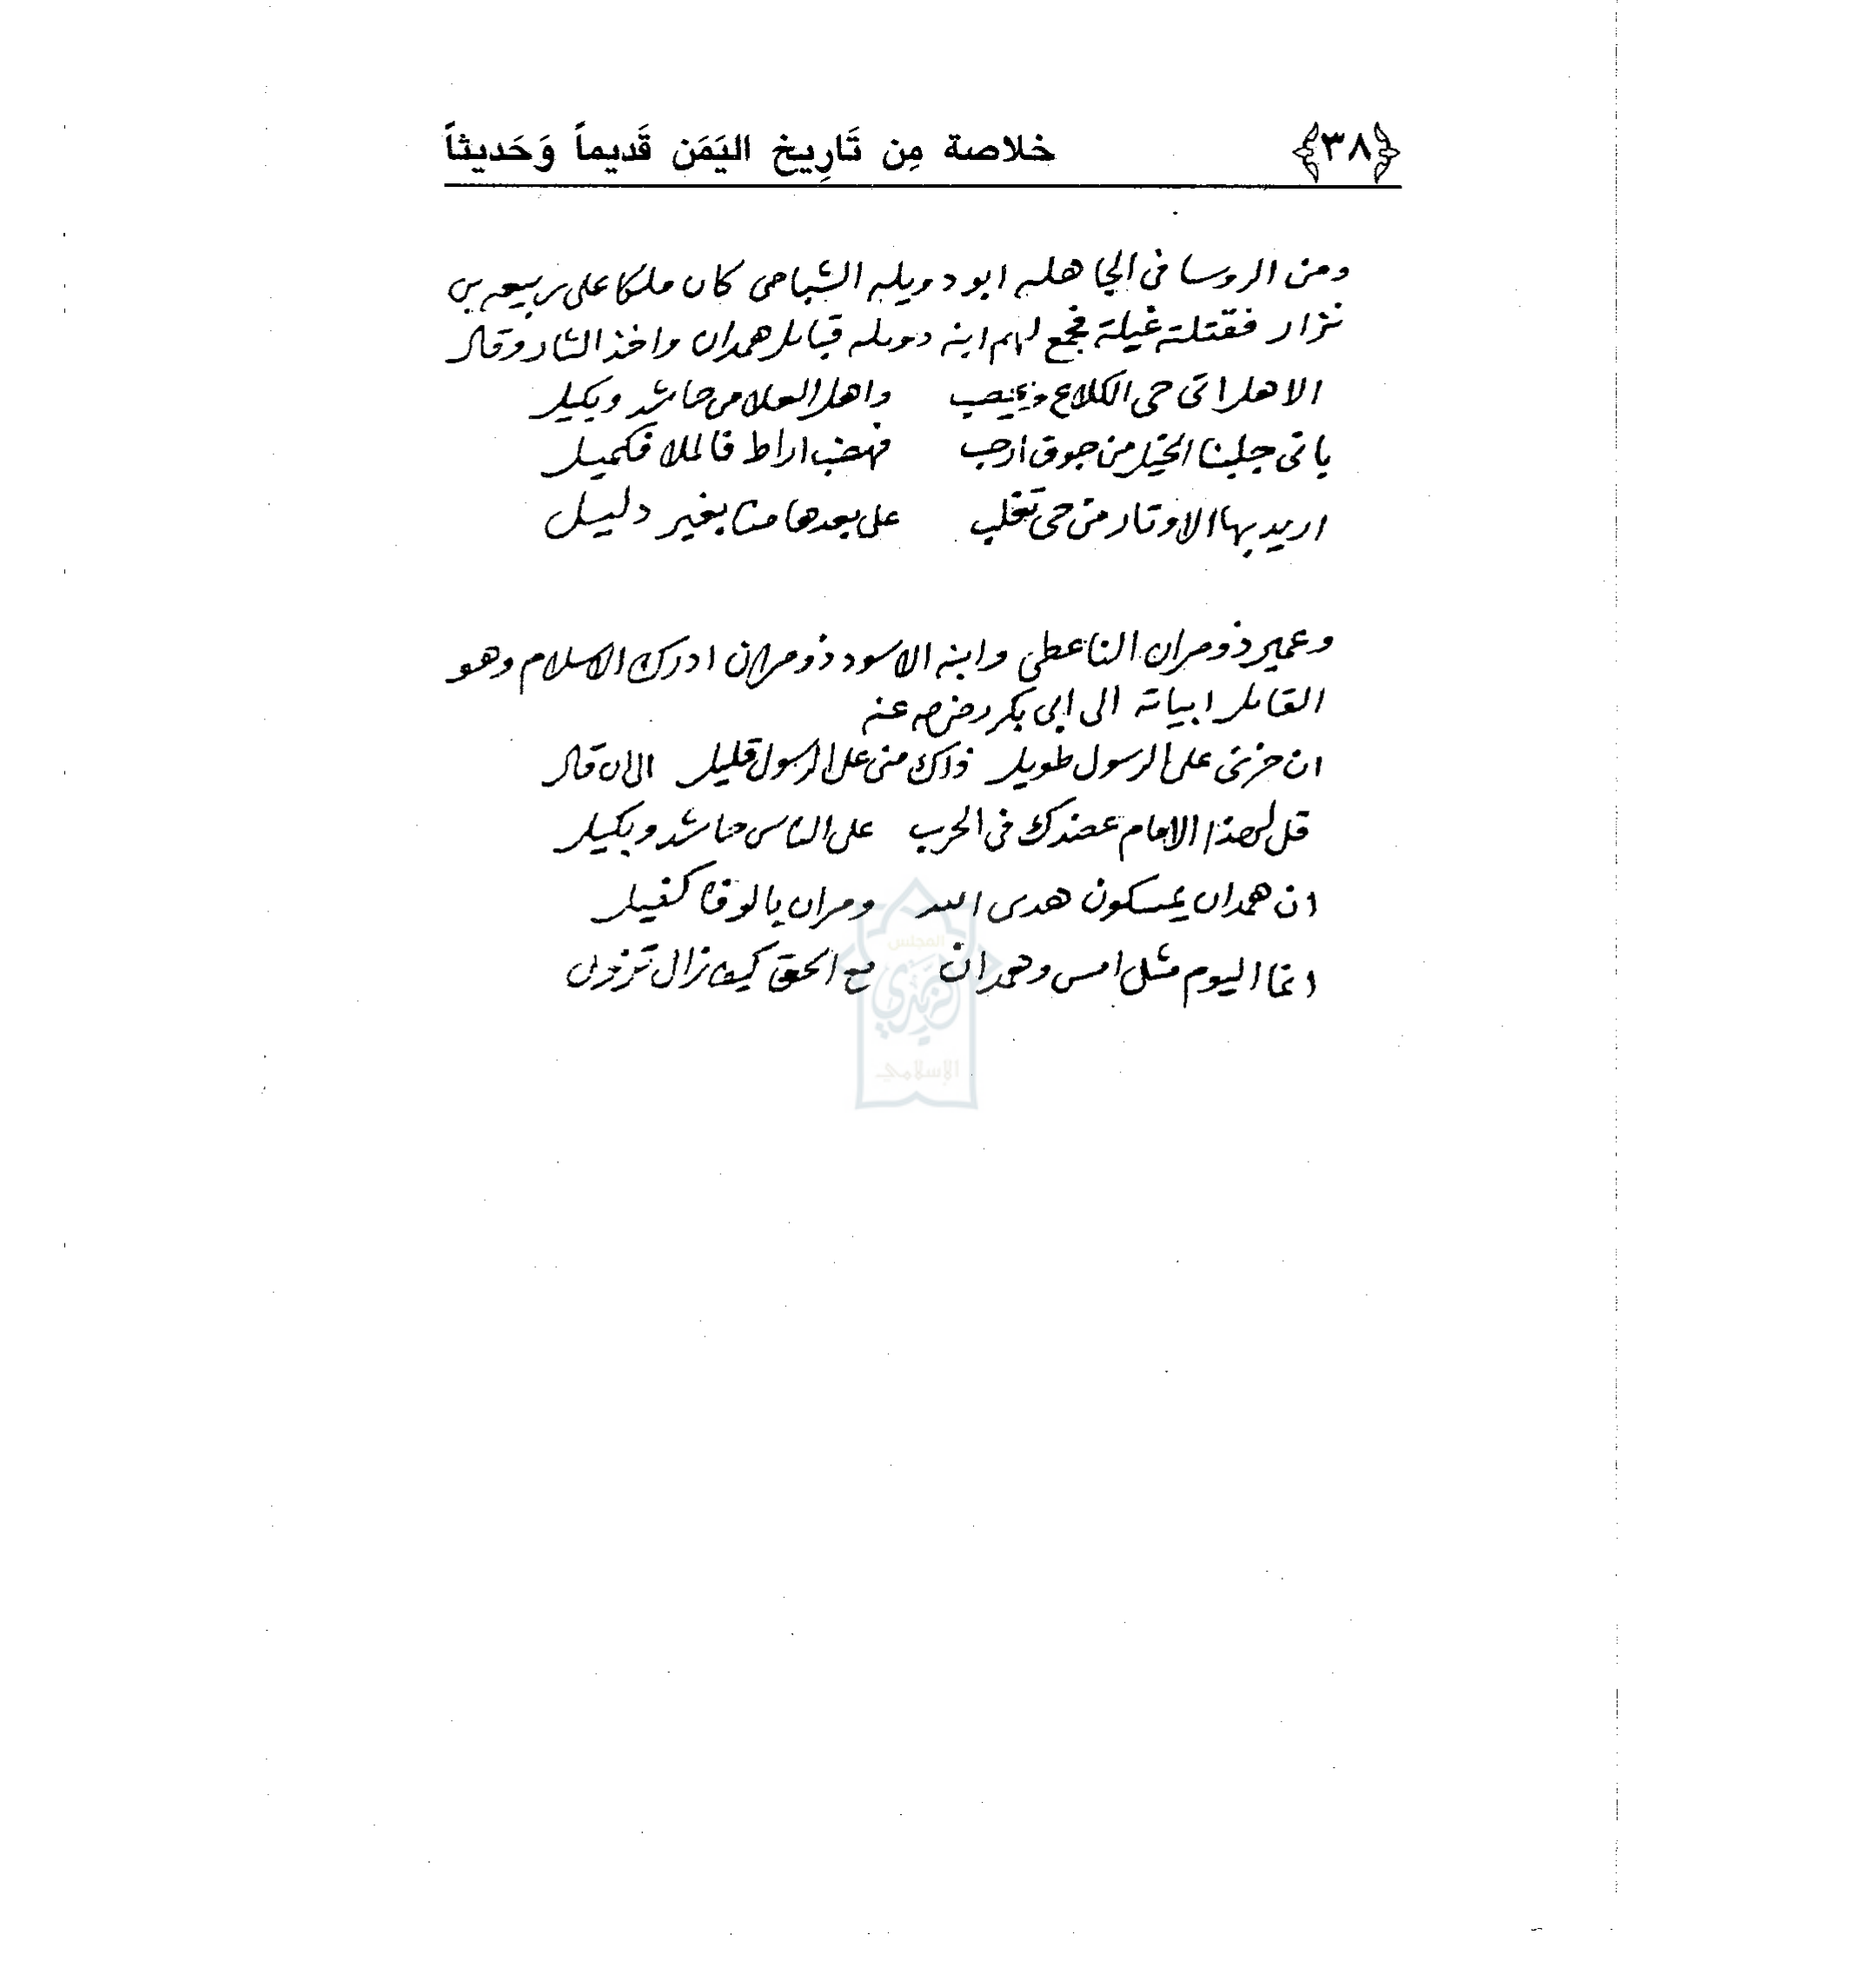 ﴿٣٨﴾ خلاصة مِن تَارِيخ اليَمَن قَديماً وَحَديثاً
ومن الروسا في الجاهليه ابو دويله الشباحي كان ملكا على ربيعه بن
نزار فقتلته غيلة فجمع لهم ابنه دويله قبايل همدان واخذ الثار وقال
الا هل اتى حي الكلاع ويحصب واهل العلا من حاشد وبكيل
باتى جلبنا الخيل من جوف ارحب فهضب اراط فالملا فكميل
اريد بها الاوتار من حي تغلب على بعدها منا بغير دليل
وعمير ذو مران الناعطي وابنه الاسود ذو مران ادرك الاسلام وهو
القايل ابياته الى ابي بكر رضي عنه
ان حزني على الرسول طويل ذاك مني على الرسول قليل الى ان قال
قل لهذا الامام عضدك في الحرب على الناس حاشد وبكيل
ان همدان يمسكون هدى الله ومران بالوفا كفيل
انما اليوم مثل امس وهمدان مع الحق كيف زال تزول
المجلس
الزيدي
الإسلامي